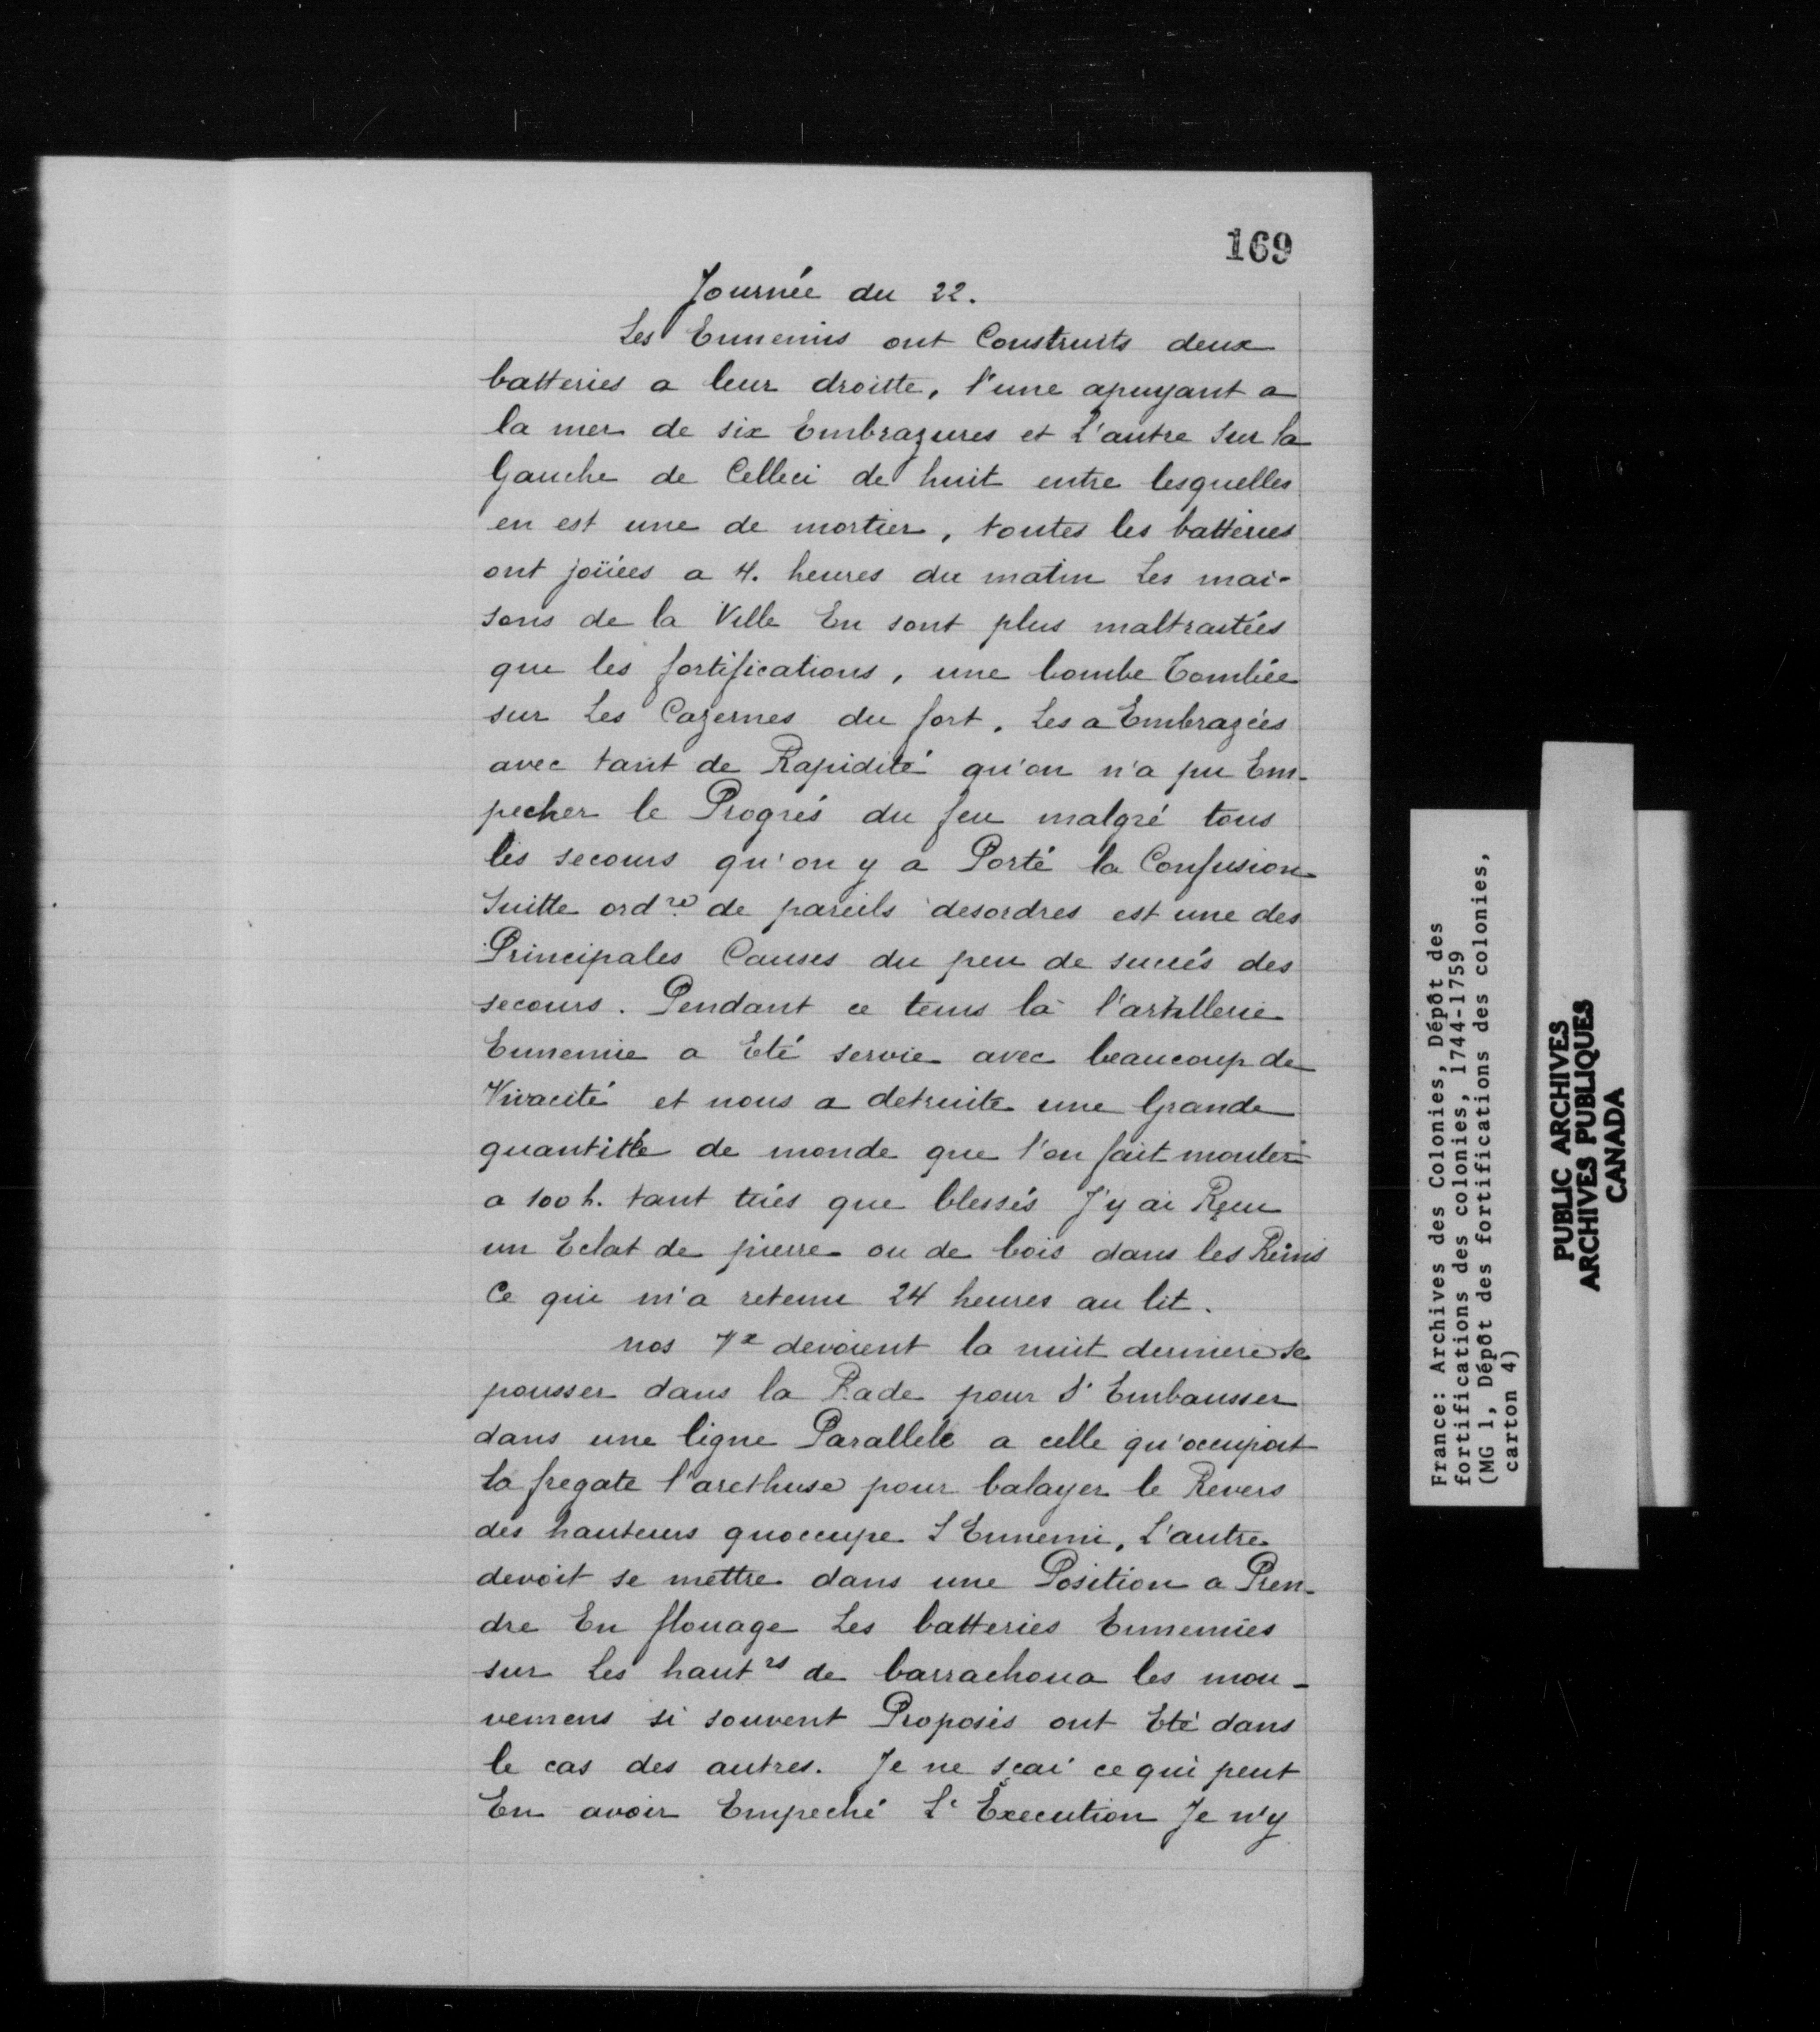 169
Journée du 22.
Les Ennemis ont Construits deux
batteries a leur droitte, l'une apuyant a
la mer de six Embrazures et L'autre sur la
Gauche de Celleci de huit entre lesquelles
en est une de mortier, toutes les batteries
ont joüées a 4. heures du matin Les mai-
sons de la Ville En sont plus maltraitées
que les fortifications, une bombe Tombée
sur Les Cazernes du fort, Les a Embrazées
avec tant de Rapidité qu'on n'a pu Em-
pecher le Progrés du feu malgré tous
les secours qu'on y a Porté la Confusion
Suitte ordre de pareils desordres est une des
Principales Causes du peu de succés des
secours. Pendant ce tems la l'artillerie
Ennemie a Eté servie avec beaucoup de
Vivacité et nous a detruite une Grande
quantitte de monde que l'on fait monter
a 100 h. tant tués que blessés J'y ai Rçeu
un Eclat de pierre ou de bois dans les Reins
Ce qui m'a retenu 24 heures au lit.
nos Vx devoient la nuit derniere se
pousser dans la Rade pour S'Embausser
dans une ligne Parallele a celle qu'occupoit
la fregate l'arethuse pour balayer le Revers
des hauteurs quoccupe L'Ennemi, L'autre
devoit se mettre dans une Position a Pren-
dre En flouage Les batteries Ennemies
sur Les hautrs de barrachoua les mou-
vemens si souvent Proposés ont Eté dans
le cas des autres. Je ne sçai ce qui peut
En avoir Empeché L'Execution Je n'y
France: Archives des Colonies, Dépôt des
fortifications des colonies, 1744-1759
(MG 1, Dépôt des fortifications des colonies,
carton 4)
PUBLIC ARCHIVES
ARCHIVES PUBLIQUES
CANADA